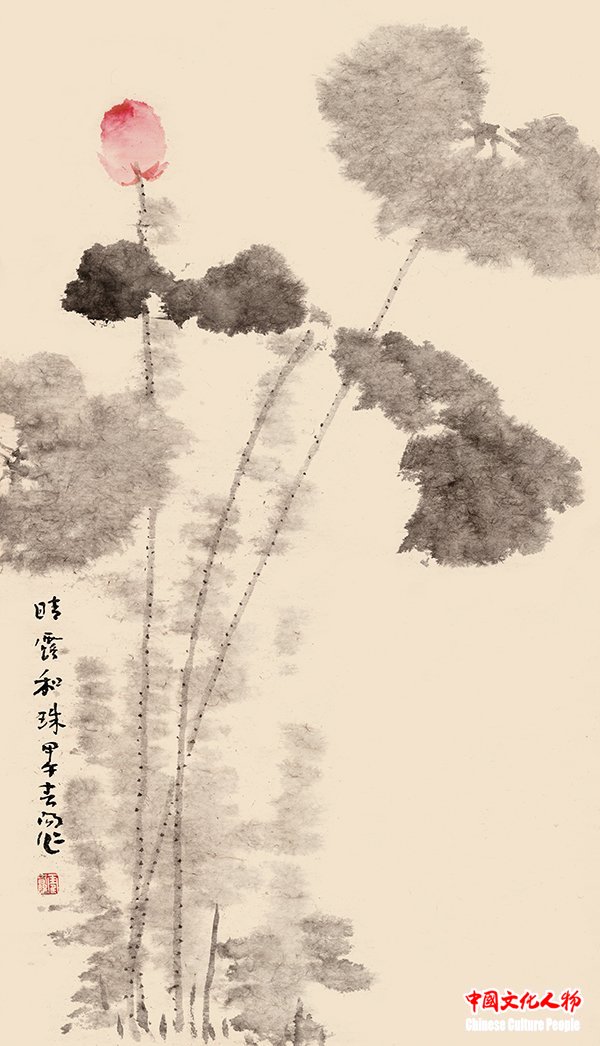 晴露和珠甲午吉向作
中國文化人物
Chinese Culture People